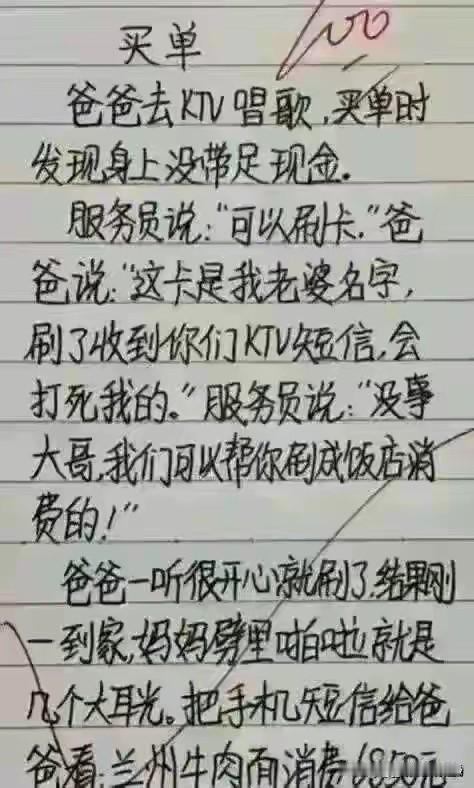 100
买单
爸爸去KTV唱歌,买单时
发现身上没带足现金.
服务员说:“可以刷卡.”爸
爸说:“这卡是我老婆名字,
刷了收到你们KTV短信,会
打死我的。”服务员说:“没事
大哥,我们可以帮你刷成饭店消
费的!”
爸爸一听很开心就刷了,结果刚
一到家,妈妈劈里啪啦就是
几个大耳光。把手机短信给爸
爸看:兰州牛肉面消费6850元